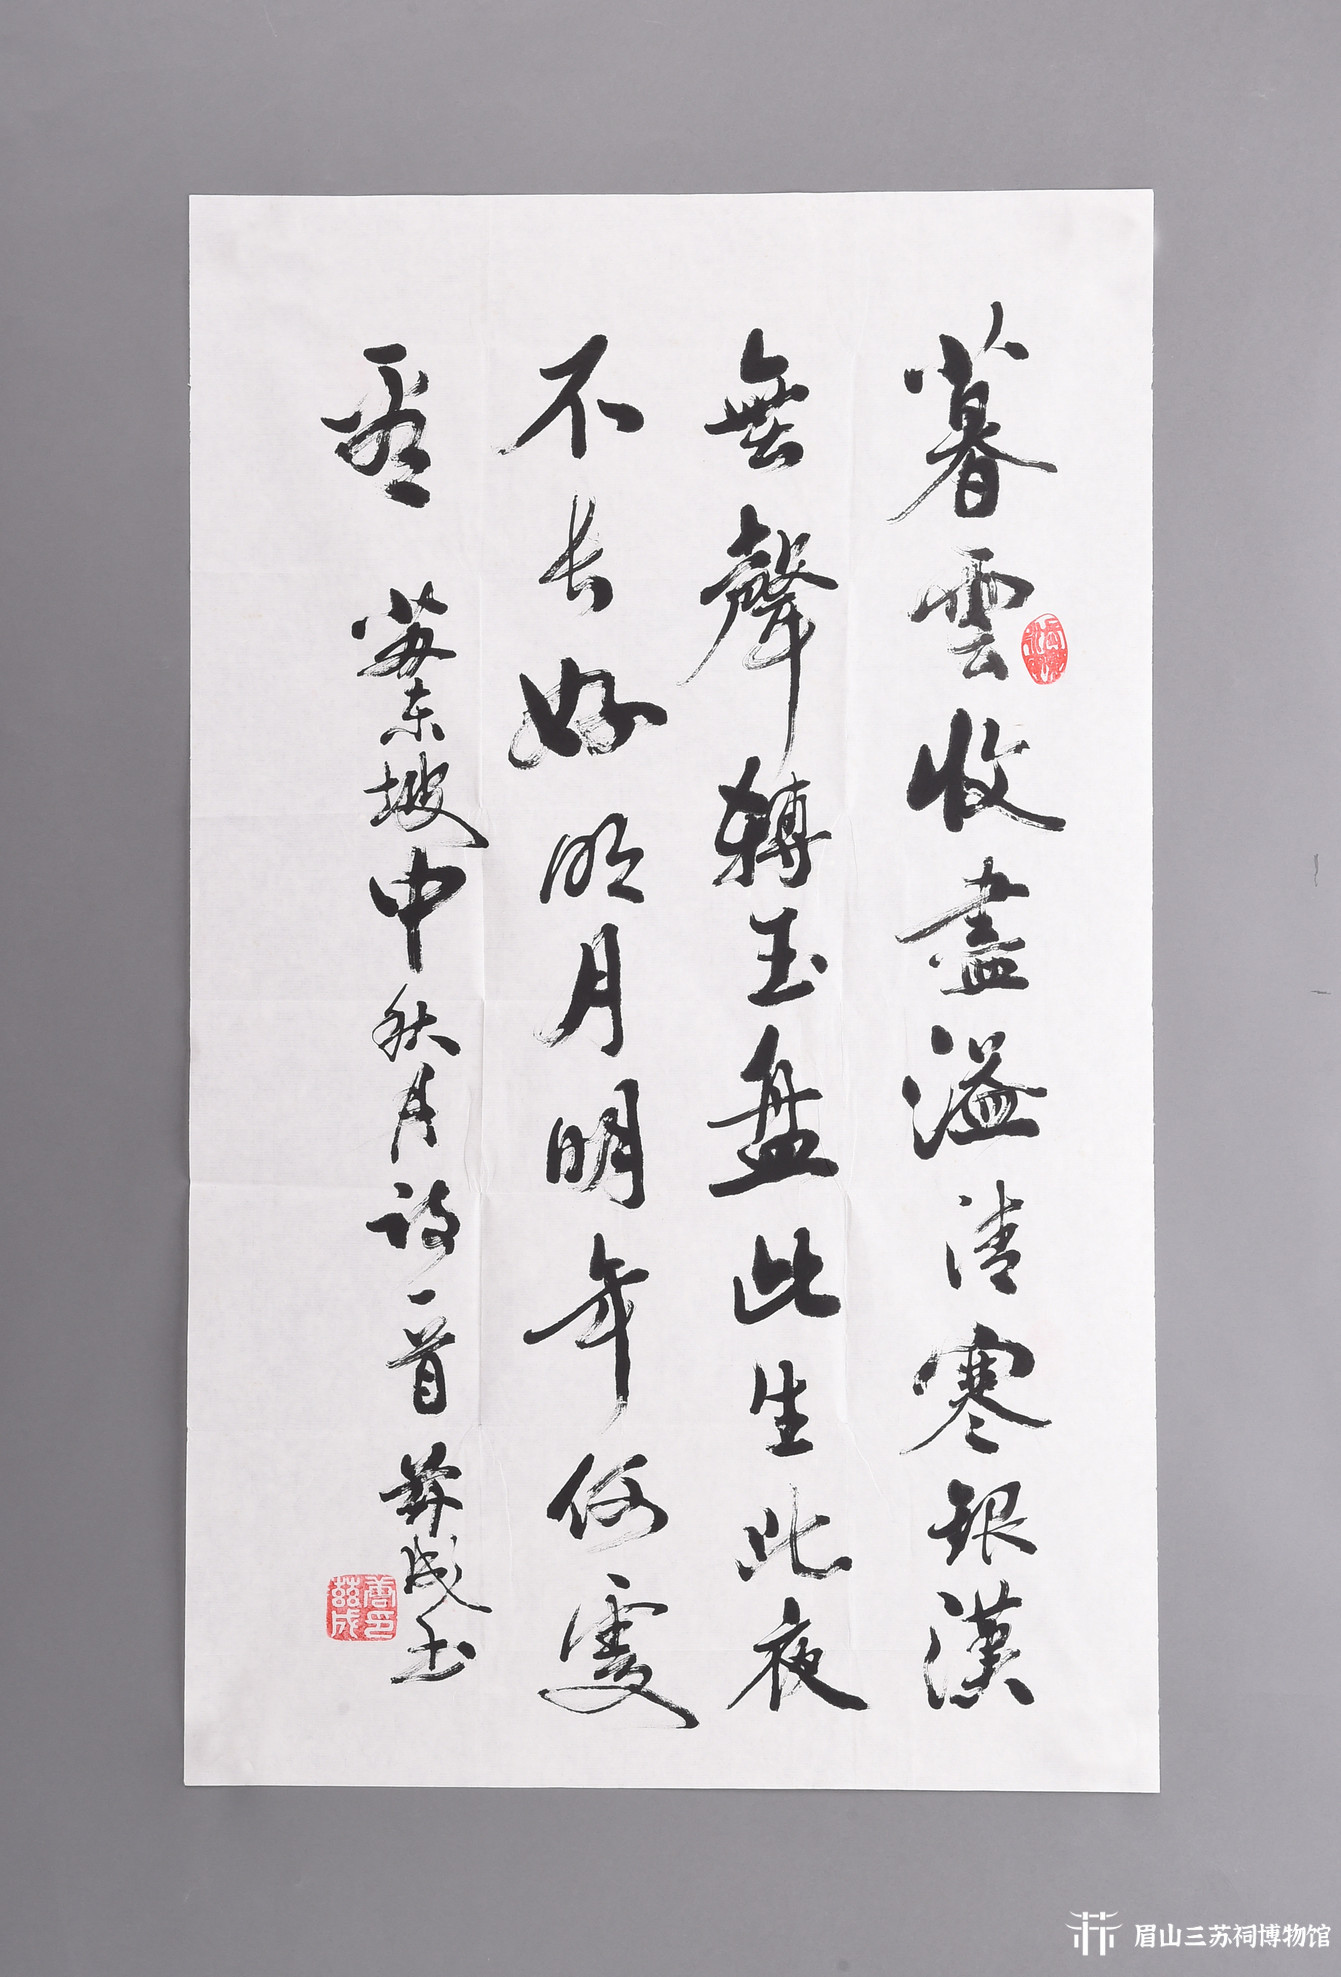 暮雲收盡溢清寒銀漢
無聲轉玉盤此生此夜
不长好明月明年何處
看 蘇東坡中秋月詩一首 茲成书
唐茲成印
眉山三苏祠博物馆